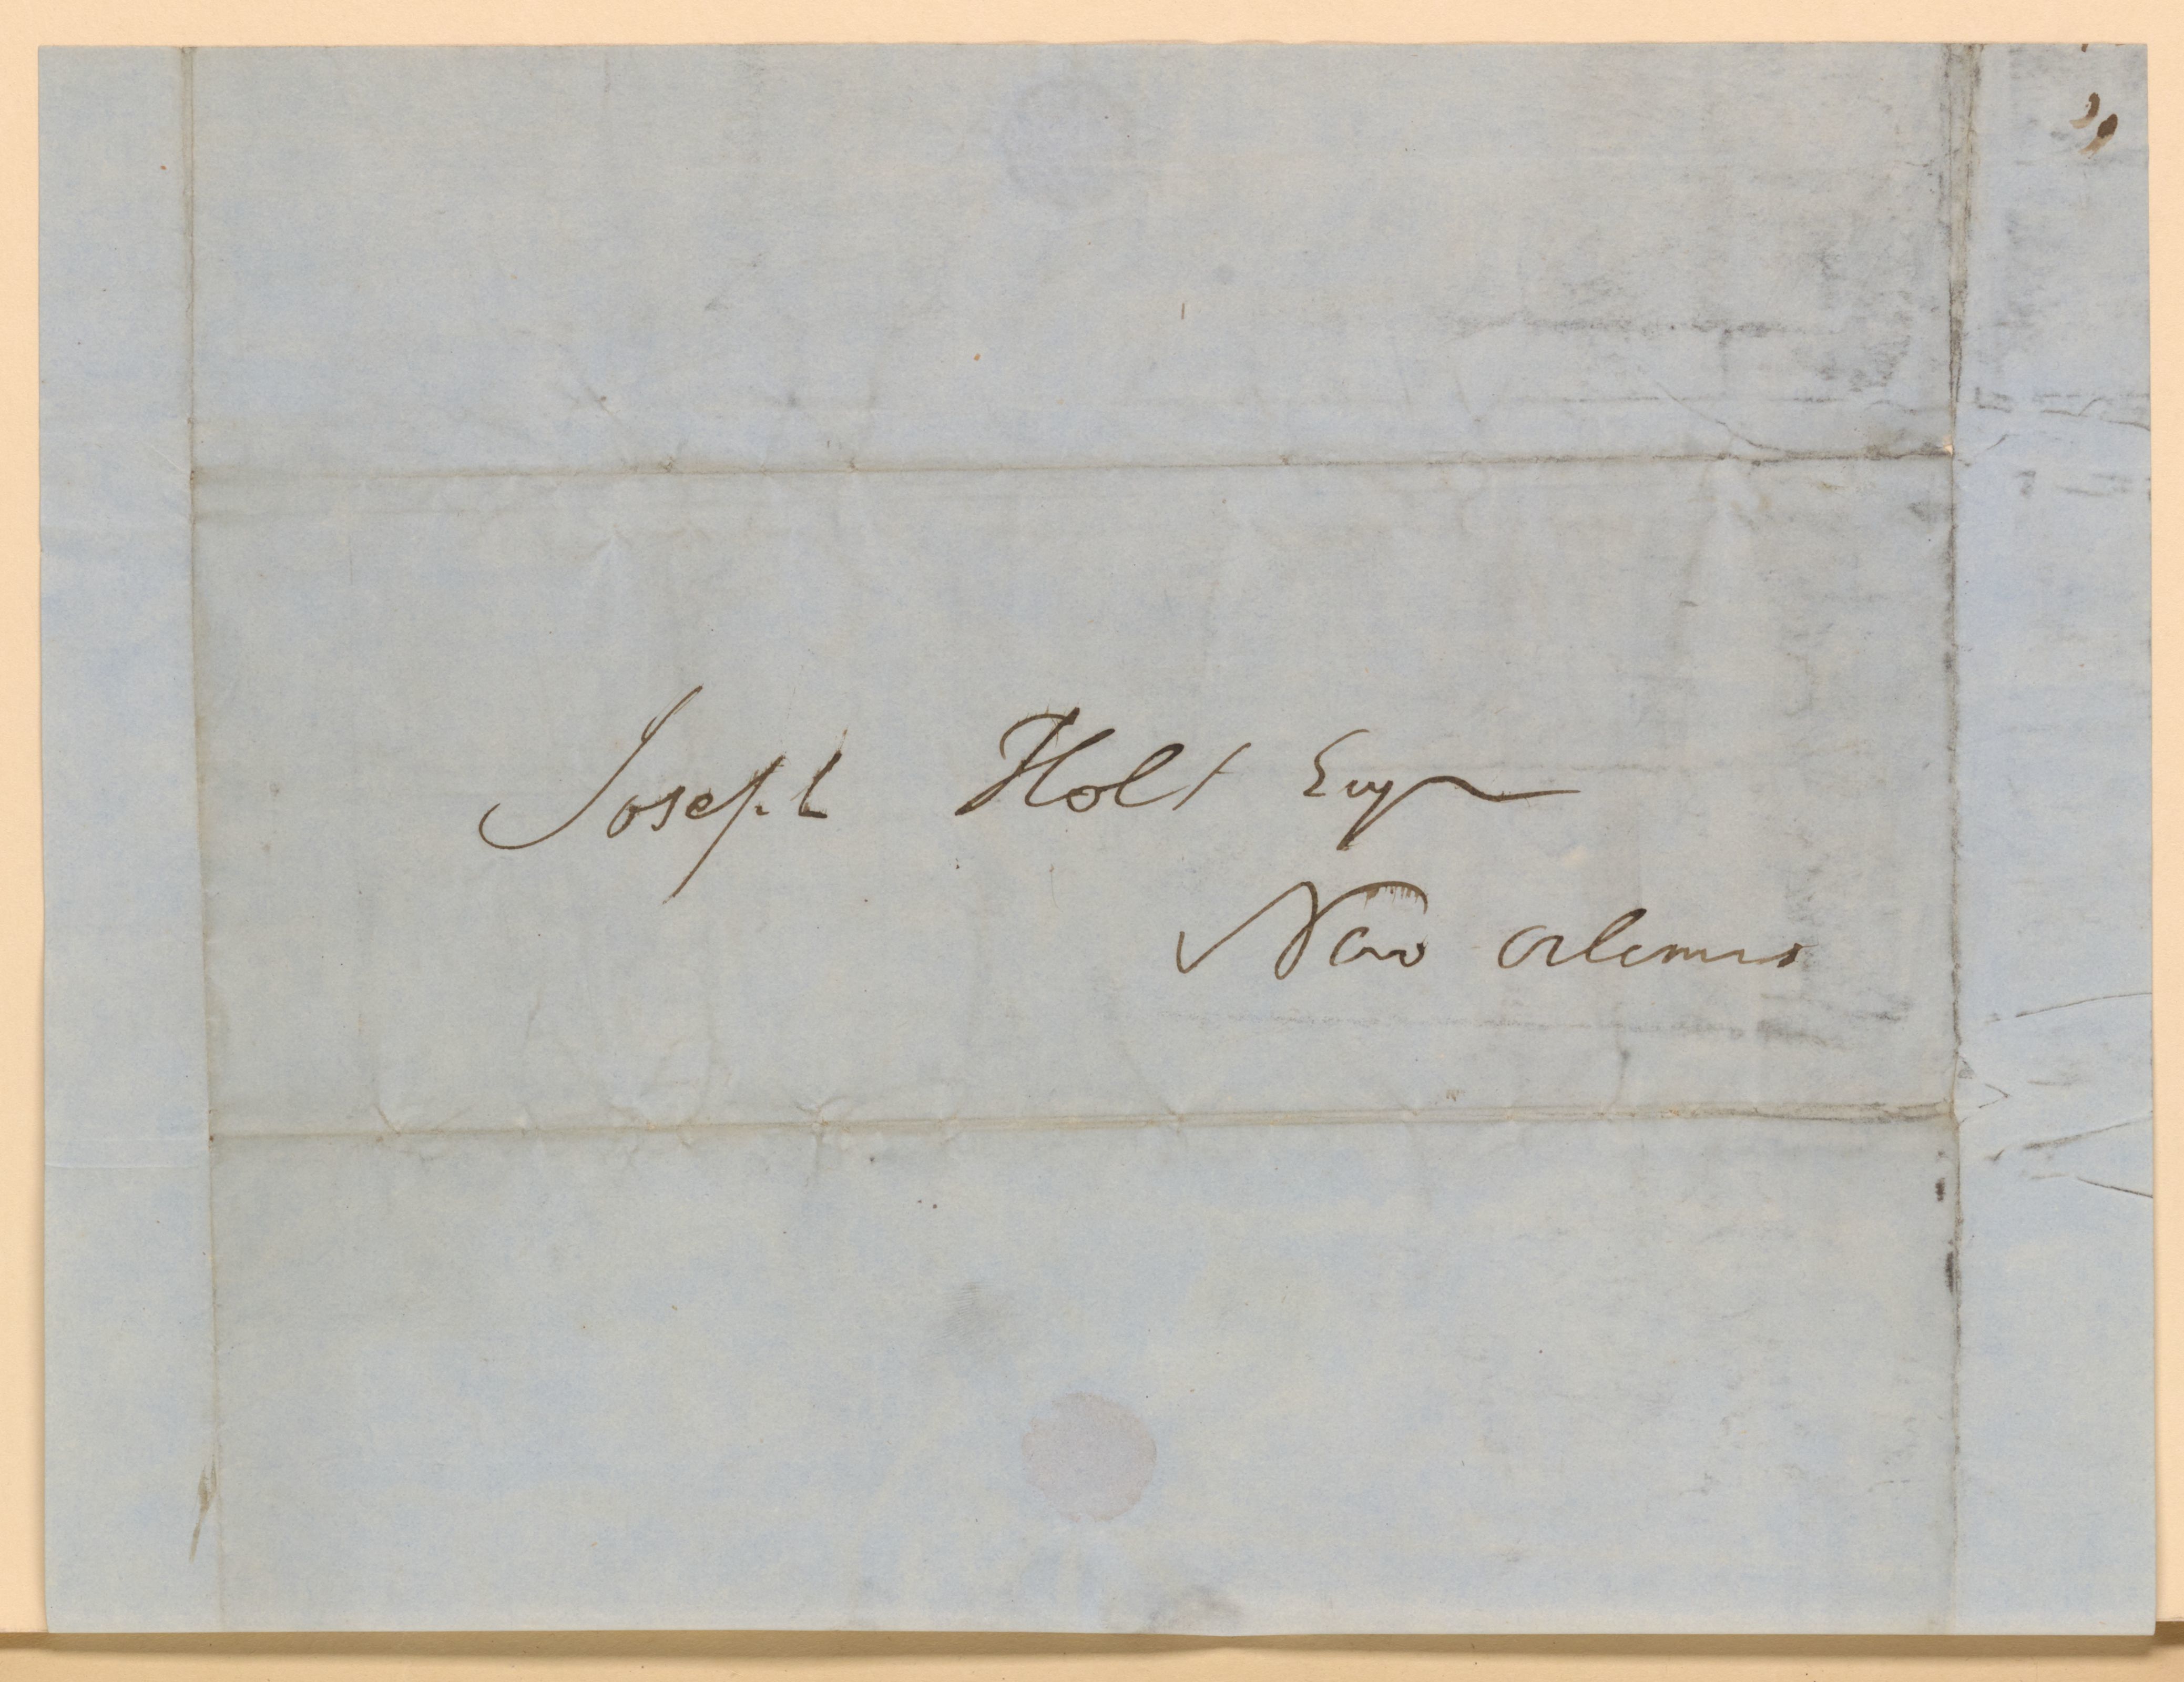 Joseph Holt Esqr
New Orleans